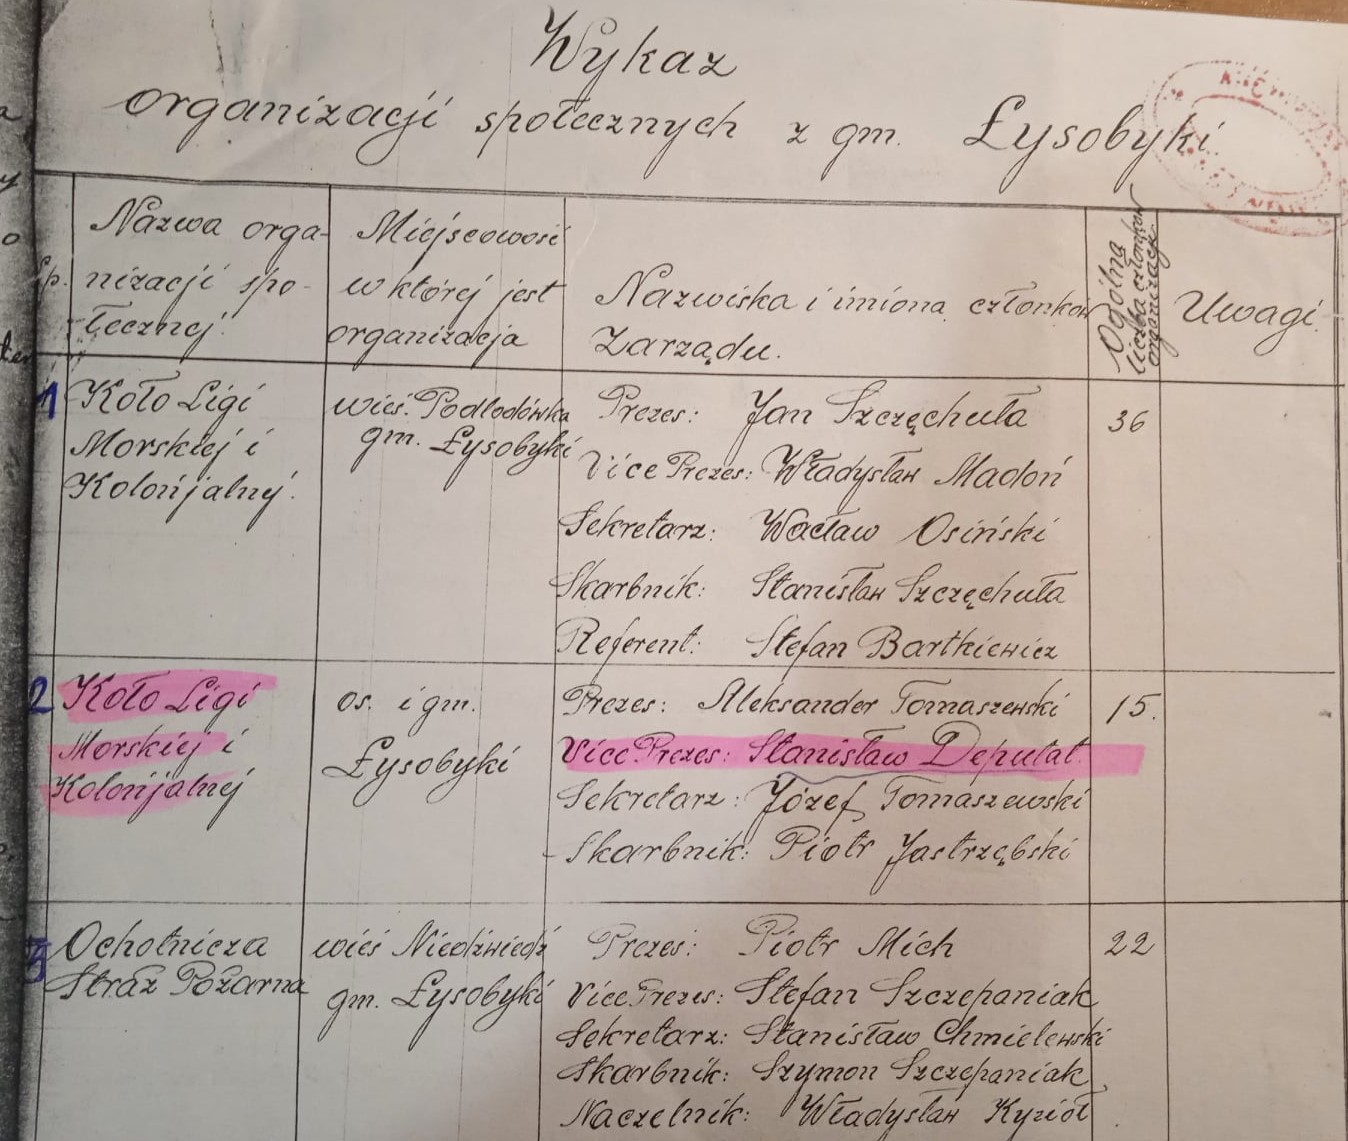 Wykaz
organizacji społecznych z gm. Łysobyki.
Lp.
Nazwa orga-
nizacji spo-
łecznej.
Miejscowość
w której jest
organizacja
Nazwiska i imiona członków
Zarządu.
Ogólna
liczba członków
organizacji
Uwagi.
1
Koło Ligi
Morskiej i
Kolonjalnej.
wieś. Podlodówka
gm. Łysobyki
Prezes: Jan Szczęchuła
Vice Prezes: Władysław Madoń
Sekretarz: Wacław Osiński
Skarbnik: Stanisław Szczęchuła
Referent: Stefan Bartkiewicz
36
2
Koło Ligi
Morskiej i
Kolonjalnej
os. i gm.
Łysobyki
Prezes: Aleksander Tomaszewski
Vice Prezes: Stanisław Deputat.
Sekretarz: Józef Tomaszewski
Skarbnik: Piotr Jastrzębski
15.
3
Ochotnicza
Straż Pożarna
wieś Niedźwiedź
gm. Łysobyki
Prezes: Piotr Mich
Vice Prezes: Stefan Szczepaniak
Sekretarz: Stanisław Chmielewski
Skarbnik: Szymon Szczepaniak
Naczelnik: Władysław Kyzioł
22